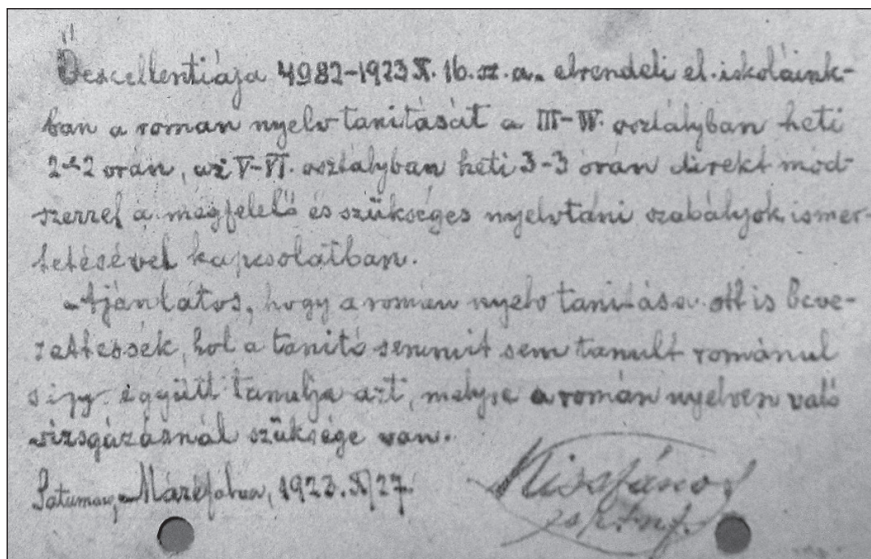 Őexcellentiája 4982-1923 X. 16. sz. a. elrendeli el. iskoláink-
ban a roman nyelv tanitását a III-IV. osztályban heti
2-2 orán, az V-VI. osztályban heti 3-3 orán direkt mód-
szerrel a megfelelő és szükséges nyelvtani szabályok ismer-
tetésével kapcsolatban.
Ajánlatos, hogy a román nyelv tanitása ott is beve-
zettessék, hol a tanitó semmit sem tanult románul
s igy együtt tanulja azt, melyre a román nyelven való
vizsgázásnál szüksége van.
Satumare-Máréfalva, 1923. X/27.
Kiss János